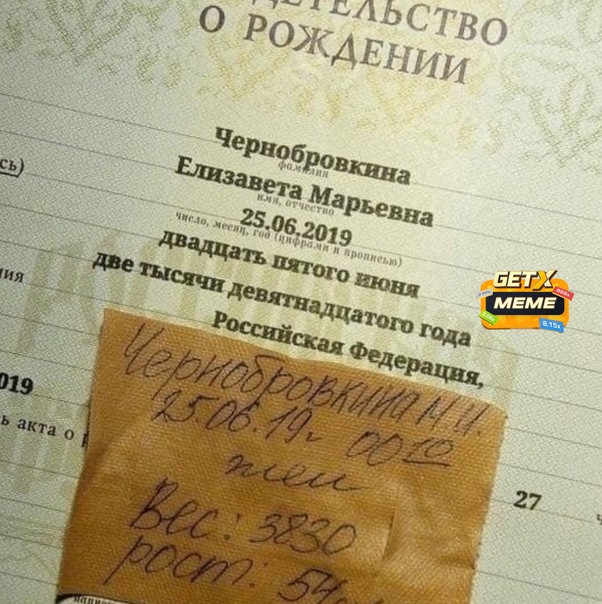 ДЕТЕЛЬСТВО
О РОЖДЕНИИ
Чернобровкина
фамилия
Елизавета Марьевна
имя, отчество
25.06.2019
число, месяц, год (цифрами и прописью)
двадцать пятого июня
две тысячи девятнадцатого года
Российская Федерация,
сь)
ния
019
ь акта о р
GETX
MEME
8.15x
Чернобровкина М.И.
25.06.19г 00 10
жен
Вес: 3830
рост: 54
27